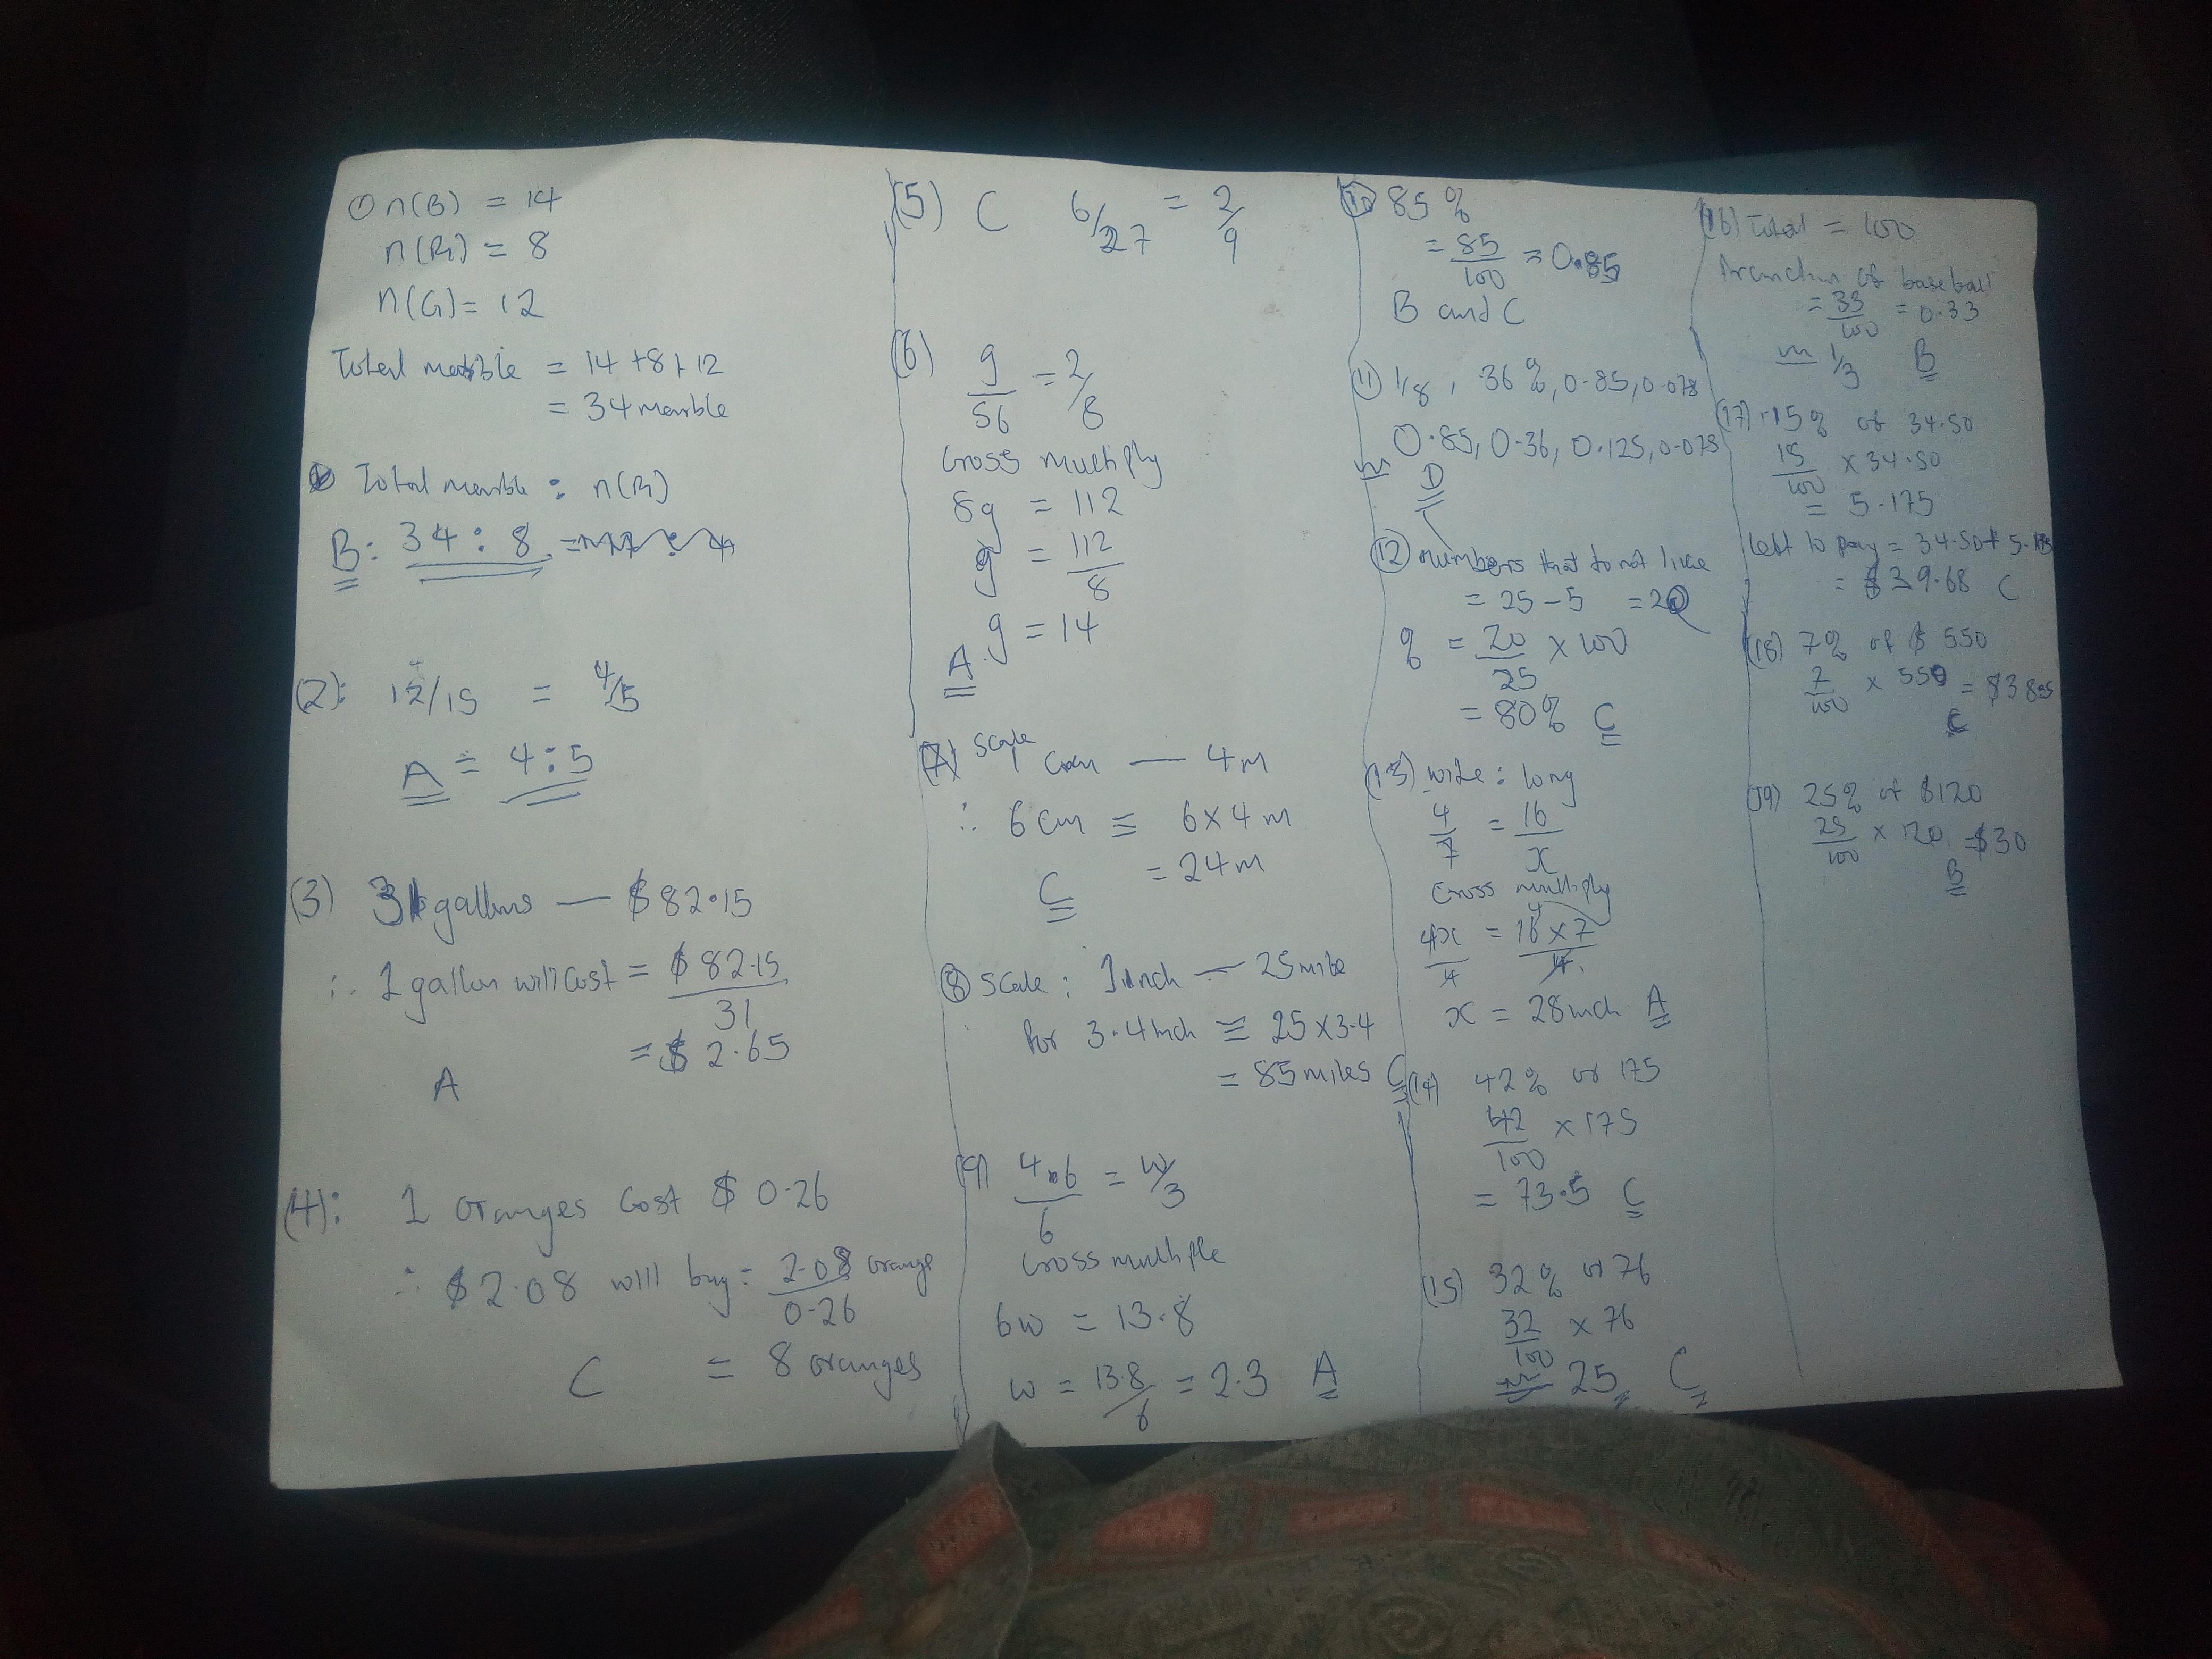 ① n(B) = 14
n(R) = 8
n(G) = 12
Total marble = 14 + 8 + 12
= 34 marble
Total marble : n(R)
B: 34 : 8
(2): 12/15 = 4/5
A = 4:5
(3) 31 gallons — $82.15
∴ 1 gallon will cost = $82.15
31
= $2.65
A
(4): 1 oranges cost $0.26
∴ $2.08 will buy = 2.08 orange
0.26
C = 8 oranges
(5) C 6/27 = 2/9
(6) g/56 = 2/8
Cross multiply
8g = 112
g = 112
8
g = 14
A
(7) Scale 1 cm — 4m
∴ 6 cm ≡ 6 x 4 m
= 24m
C
⑧ Scale : 1 inch — 25 mile
for 3.4 inch ≡ 25 x 3.4
= 85 miles C
(9) 4.6/6 = w/3
cross multiple
6w = 13.8
w = 13.8/6 = 2.3 A
⑩ 85 %
= 85/100 = 0.85
B and C
⑪ 1/8, 36%, 0.85, 0.078
0.85, 0.36, 0.125, 0.078
D
⑫ numbers that do not like
= 25 - 5 = 20
% = 20/25 x 100
= 80% C
(13) wide : long
4/7 = 16/x
Cross multiply
4x/4 = 16 x 7/4
x = 28 inch A
(14) 42% of 175
42/100 x 175
= 73.5 C
(15) 32% of 76
32/100 x 76
25 C
(16) Total = 100
of baseball
= 33/100 = 0.33
1/3 B
(17) 15% of 34.50
15/100 x 34.50
= 5.175
Left to pay = 34.50 + 5.175
= $39.68 C
(18) 7% of $550
7/100 x 550 = $38.5
C
(19) 25% of $120
25/100 x 120 = $30
B